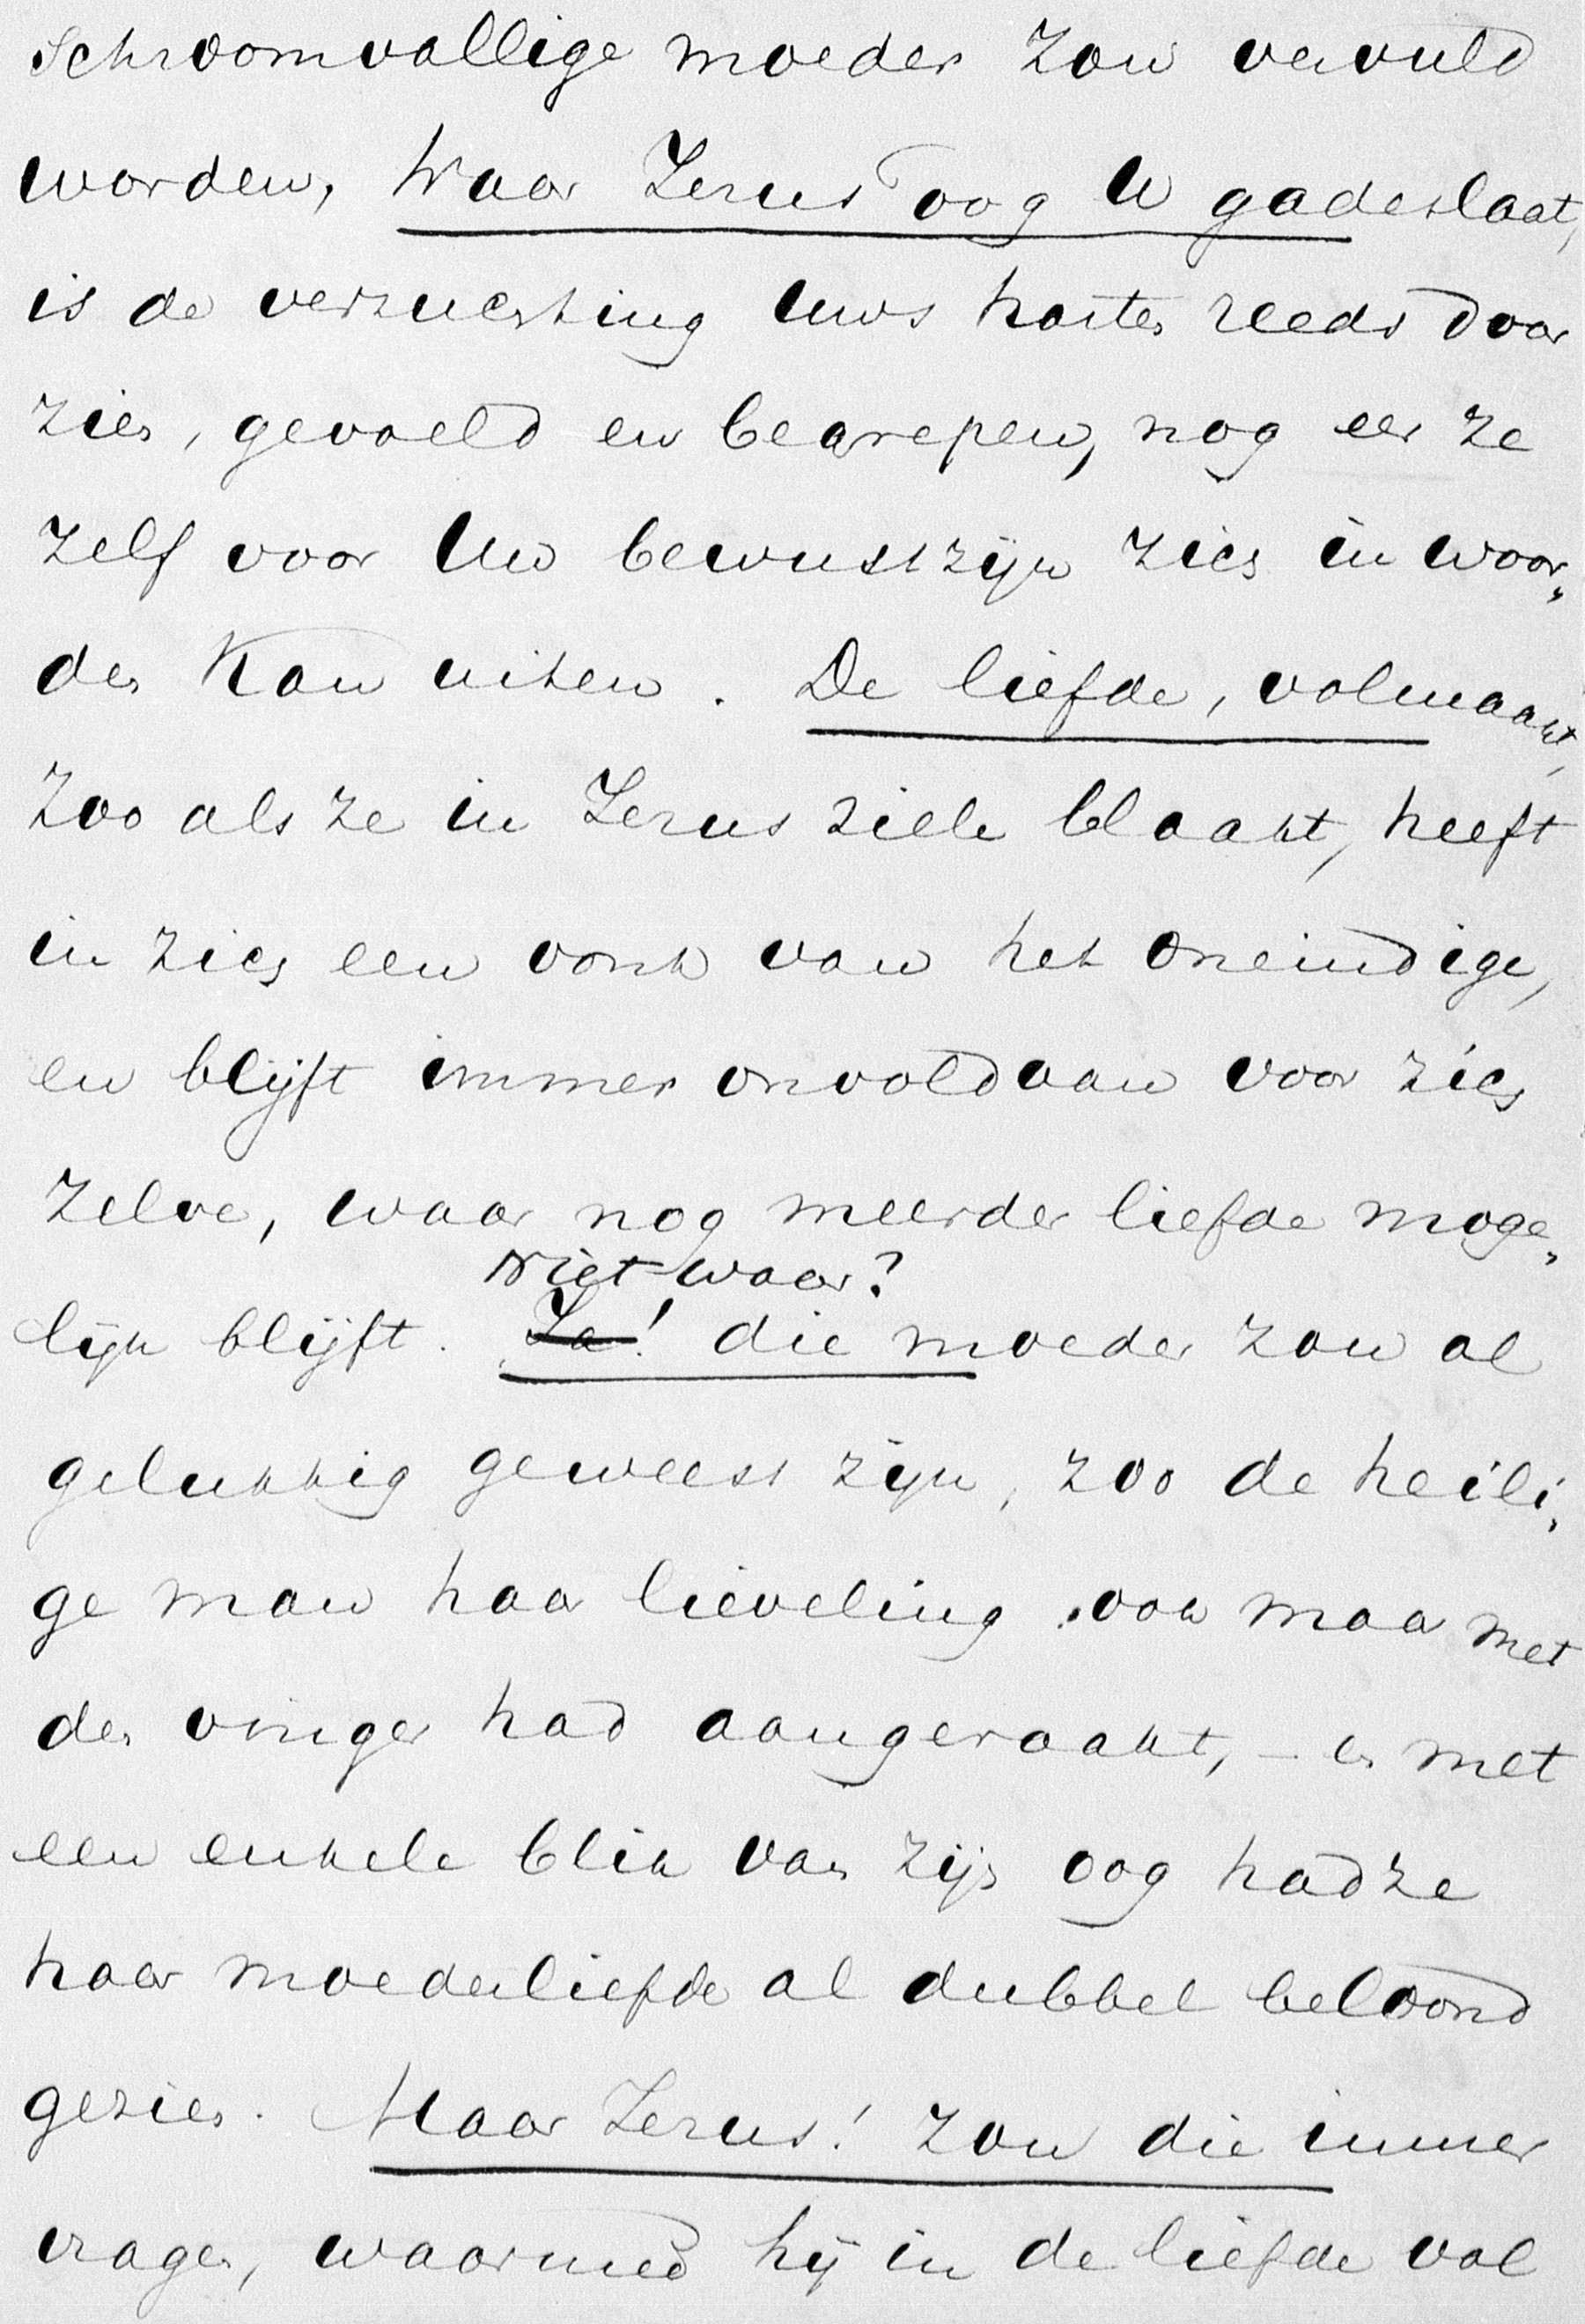 schroomvallige moeder zou vervuld
worden, Waar Jezus oog U gadeslaat,
is de verzuchting Uws harten reeds door
zien, gevoeld en begrepen, nog eer ze
zelf voor Uw bewustzijn zich in woor„
den kan uiten. De liefde, volmaakt,
zoo als ze in Jezus ziele blaakt, heeft
in zich een vonk van het oneindige,
en blijft immer onvoldaan voor zich
zelve, waar nog meerder liefde moge„
Niet waar?
lijk blijft. Ja! die moeder zou al
gelukkig geweest zijn, zoo de heili„
ge man haar lieveling ook maar met
den vinger had aangeraakt, – en met
een enkele blik van zijn oog had ze
haar moederliefde al dubbel beloond
gezien. Maar Jezus! zou die immer
vragen, waarmeê hij in de liefde vol